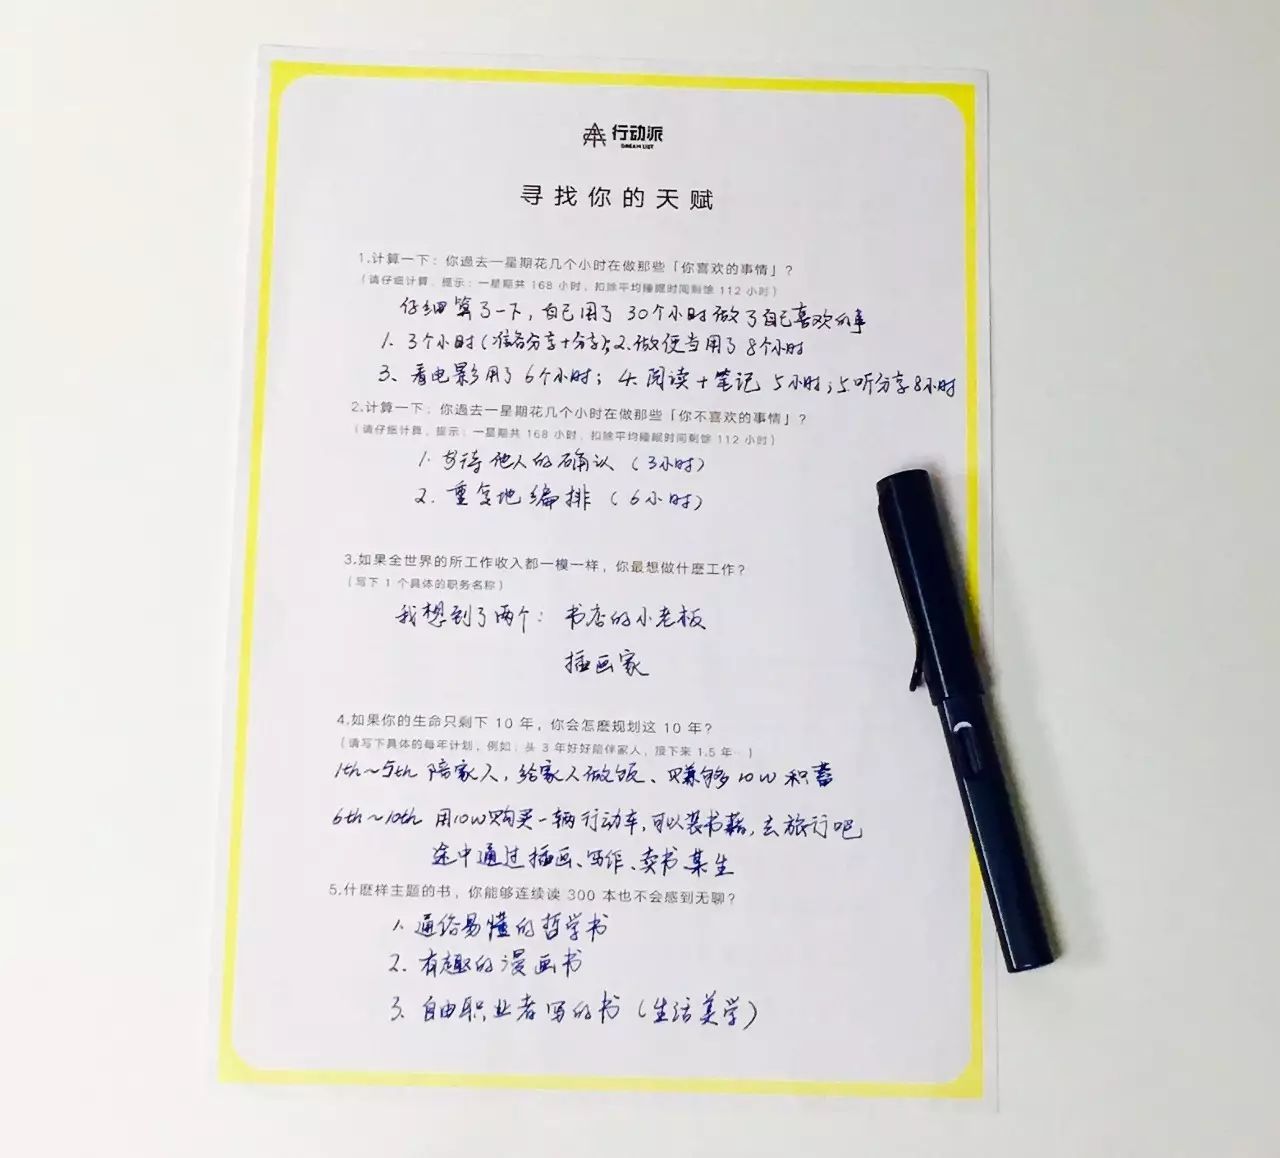 行动派
DREAM LIST
寻找你的天赋
1.计算一下：你過去一星期花几个小时在做那些「你喜欢的事情」？
（请仔细计算，提示：一星期共 168 小时，扣除平均睡眠时间剩馀 112 小时）
仔细算了一下，自己用了 30个小时做了自己喜欢的事
1. 3个小时（准备分享+分享）；2.做便当用了8个小时
3、看电影用了6个小时；4.阅读+笔记 5小时；5.听分享8小时
2.计算一下：你過去一星期花几个小时在做那些「你不喜欢的事情」？
（请仔细计算，提示：一星期共 168 小时，扣除平均睡眠时间剩馀 112 小时）
1. 等待他人的确认（3小时）
2. 重复地编排（6小时）
3.如果全世界的所工作收入都一模一样，你最想做什麽工作？
（写下 1 个具体的职务名称）
我想到了两个：书店的小老板
插画家
4.如果你的生命只剩下 10 年，你会怎麽规划这 10 年？
（请写下具体的每年计划，例如：头 3 年好好陪伴家人，接下来 1.5 年…）
1th~5th 陪家人，给家人做饭、赚够10W积蓄
6th~10th 用10W购买一辆行动车，可以装书籍，去旅行吧
途中通过插画、写作、卖书某生
5.什麽样主题的书，你能够连续读 300 本也不会感到无聊？
1. 通俗易懂的哲学书
2. 有趣的漫画书
3. 自由职业者写的书（生活美学）